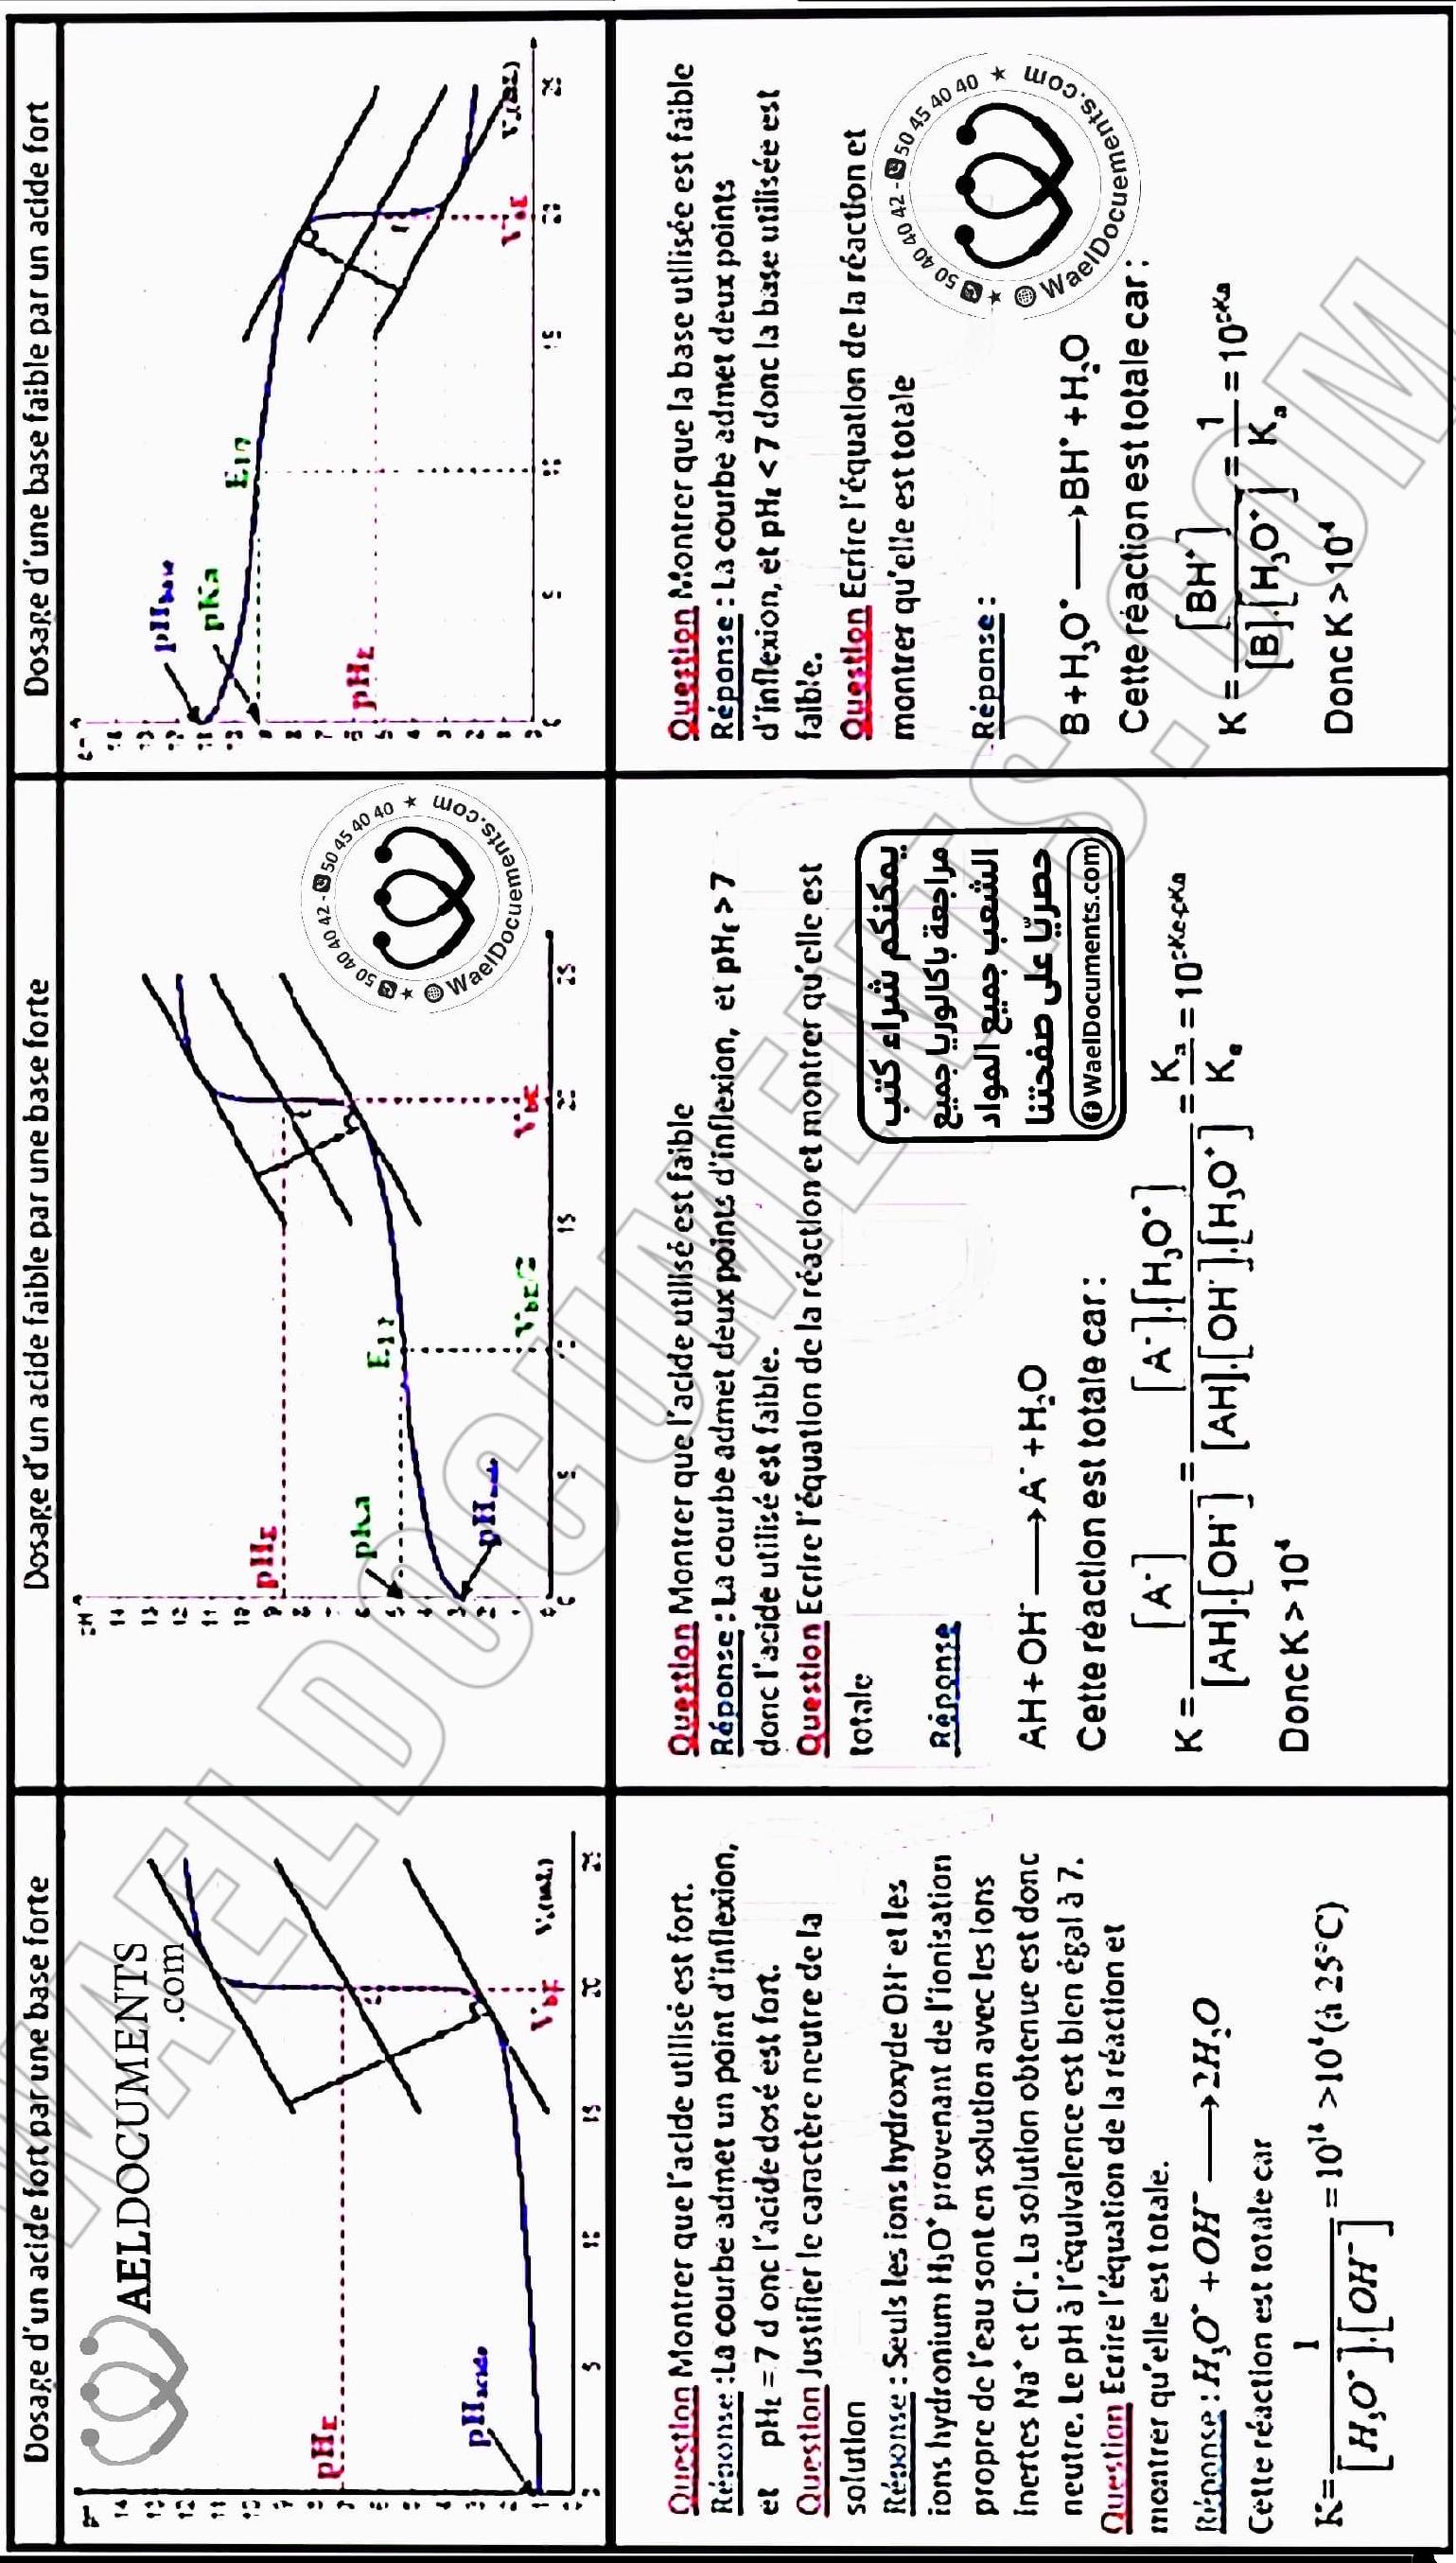 Dosage d'un acide fort par une base forte
AELDOCUMENTS
.com
14
13
12
11
10
9
8
7
6
5
4
3
2
1
pH_E
pH_acide
5
10
15
20
25
V_bE
Dosage d'un acide faible par une base forte
14
13
12
11
10
9
8
6
5
4
3
2
1
pH_E
pKa
E_1/2
pH_acide
5
15
20
25
V_bE/2
V_bE
50 40 40 42 - 50 45 40 40
WaelDocuements.com
Dosage d'une base faible par un acide fort
14
13
12
11
10
9
8
7
5
4
3
2
1
pH_base
pKa
E_1/2
pH_E
5
10
15
20
25
Question Montrer que l'acide utilisé est fort.
Réponse :La courbe admet un point d'inflexion,
et pH_E = 7 d onc l'acide dosé est fort.
Question Justifier le caractère neutre de la
solution
Réponse : Seuls les ions hydroxyde OH⁻ et les
ions hydronium H₃O⁺ provenant de l'ionisation
propre de l'eau sont en solution avec les ions
inertes Na⁺ et Cl⁻. La solution obtenue est donc
neutre. Le pH à l'équivalence est bien égal à 7.
Question Ecrire l'équation de la réaction et
montrer qu'elle est totale.
Réponse : H₃O⁺ + OH⁻ ⟶ 2H₂O
Cette réaction est totale car
K= 1 / [H₃O⁺].[OH⁻] = 10¹⁴ >10⁴(à 25°C)
Question Montrer que l'acide utilisé est faible
Réponse : La courbe admet deux points d'inflexion, et pH_E > 7
donc l'acide utilisé est faible.
Question Ecrire l'équation de la réaction et montrer qu'elle est
totale
Réponse
AH + OH⁻ ⟶ A⁻ + H₂O
Cette réaction est totale car :
K = [A⁻] / [AH].[OH⁻] = [A⁻].[H₃O⁺] / [AH].[OH⁻].[H₃O⁺] = Kₐ / Kₑ = 10^(pKe-pKa)
Donc K > 10⁴
يمكنكم شراء كتب
مراجعة باكالوريا جميع
الشعب جميع المواد
حصريّا على صفحتنا
WaelDocuments.com
Question Montrer que la base utilisée est faible
Réponse : La courbe admet deux points
d'inflexion, et pH_E < 7 donc la base utilisée est
faible.
Question Ecrire l'équation de la réaction et
montrer qu'elle est totale
Réponse :
B + H₃O⁺ ⟶ BH⁺ + H₂O
Cette réaction est totale car :
K = [BH⁺] / [B].[H₃O⁺] = 1 / Kₐ = 10^pKa
Donc K > 10⁴
50 40 40 42 - 50 45 40 40
WaelDocuements.com
WAELDOCUMENTS.COM